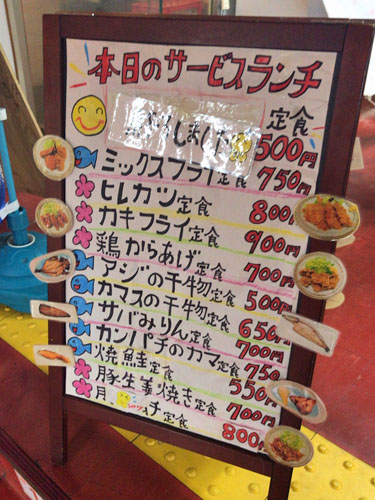 本日のサービスランチ
しました 定食 500円
ミックスフライ定食 750円
ヒレカツ定食 800円
カキフライ定食 900円
鶏からあげ定食 700円
アジの干物定食 500円
カマスの干物定食 650円
サバみりん定食 700円
カンパチのカマ定食 750
焼鮭定食 550円
豚生姜焼き定食 700円
月 チ定食 800円